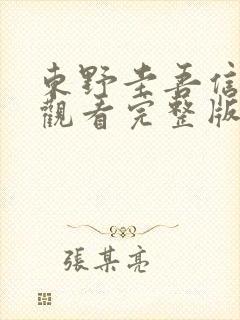 東野圭吾信
觀看完整版
張某亮